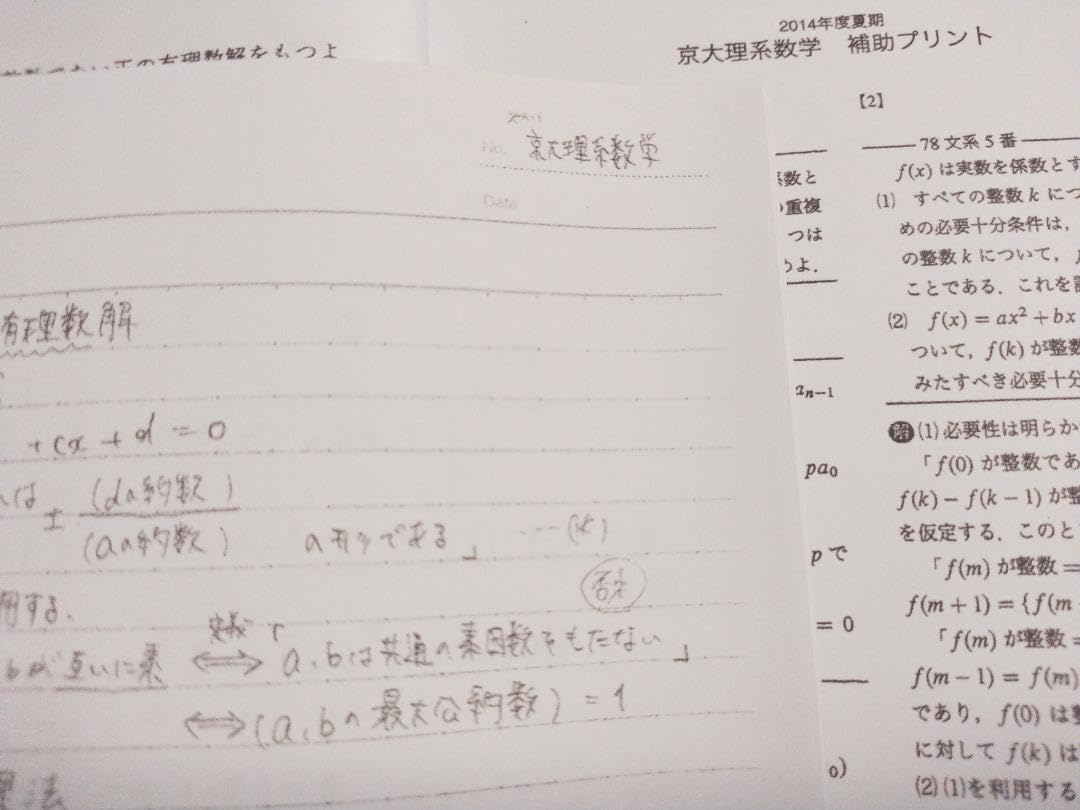 の有理数解をもつよ
No. 京大理系数学
Date
有理数解
+cx+d=0
は ± (dの約数)/(aの約数) のカタチである」 ……(*)
用する.
否定
定義
bが互いに素 ⟺ 「a, bは共通の素因数をもたない」
⟺ (a, bの最大公約数) = 1
法
2014年度夏期
京大理系数学 補助プリント
【2】
系数と
重複
つは
めよ.
an−1
pa0
p で
= 0
0)
78 文系 5 番
f(x) は実数を係数とす
(1) すべての整数 k につ
めの必要十分条件は,
の整数 k について, f
ことである. これを
(2) f(x) = ax² + bx
ついて, f(k) が整数
みたすべき必要十分
解 (1) 必要性は明らか
「f(0) が整数であ
f(k) − f(k − 1) が整
を仮定する. このと
「f(m) が整数 =
f(m + 1) = {f(m
「f(m) が整数 =
f(m − 1) = f(m)
であり, f(0) は整
に対して f(k) は
(2) (1)を利用する